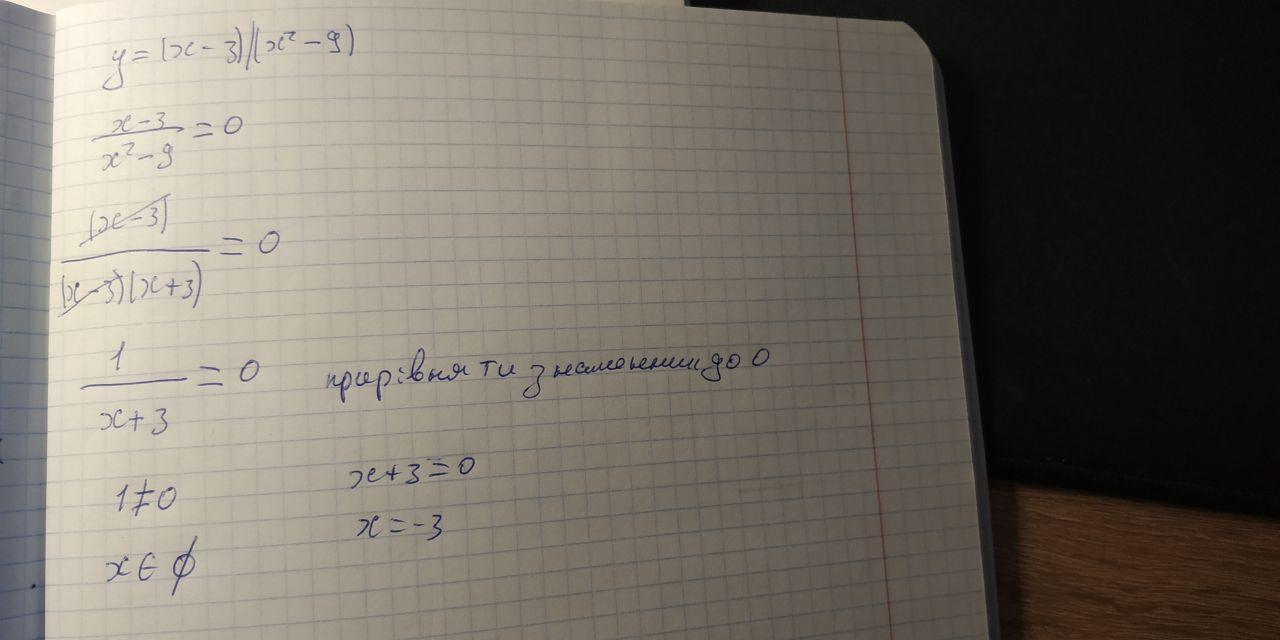 y = (x - 3)/(x² - 9)
x - 3 / x² - 9 = 0
(x - 3) / (x - 3)(x + 3) = 0
1 / x + 3 = 0 прирівняти знаменник до 0
1 ≠ 0 x + 3 = 0
x ∈ ∅ x = -3